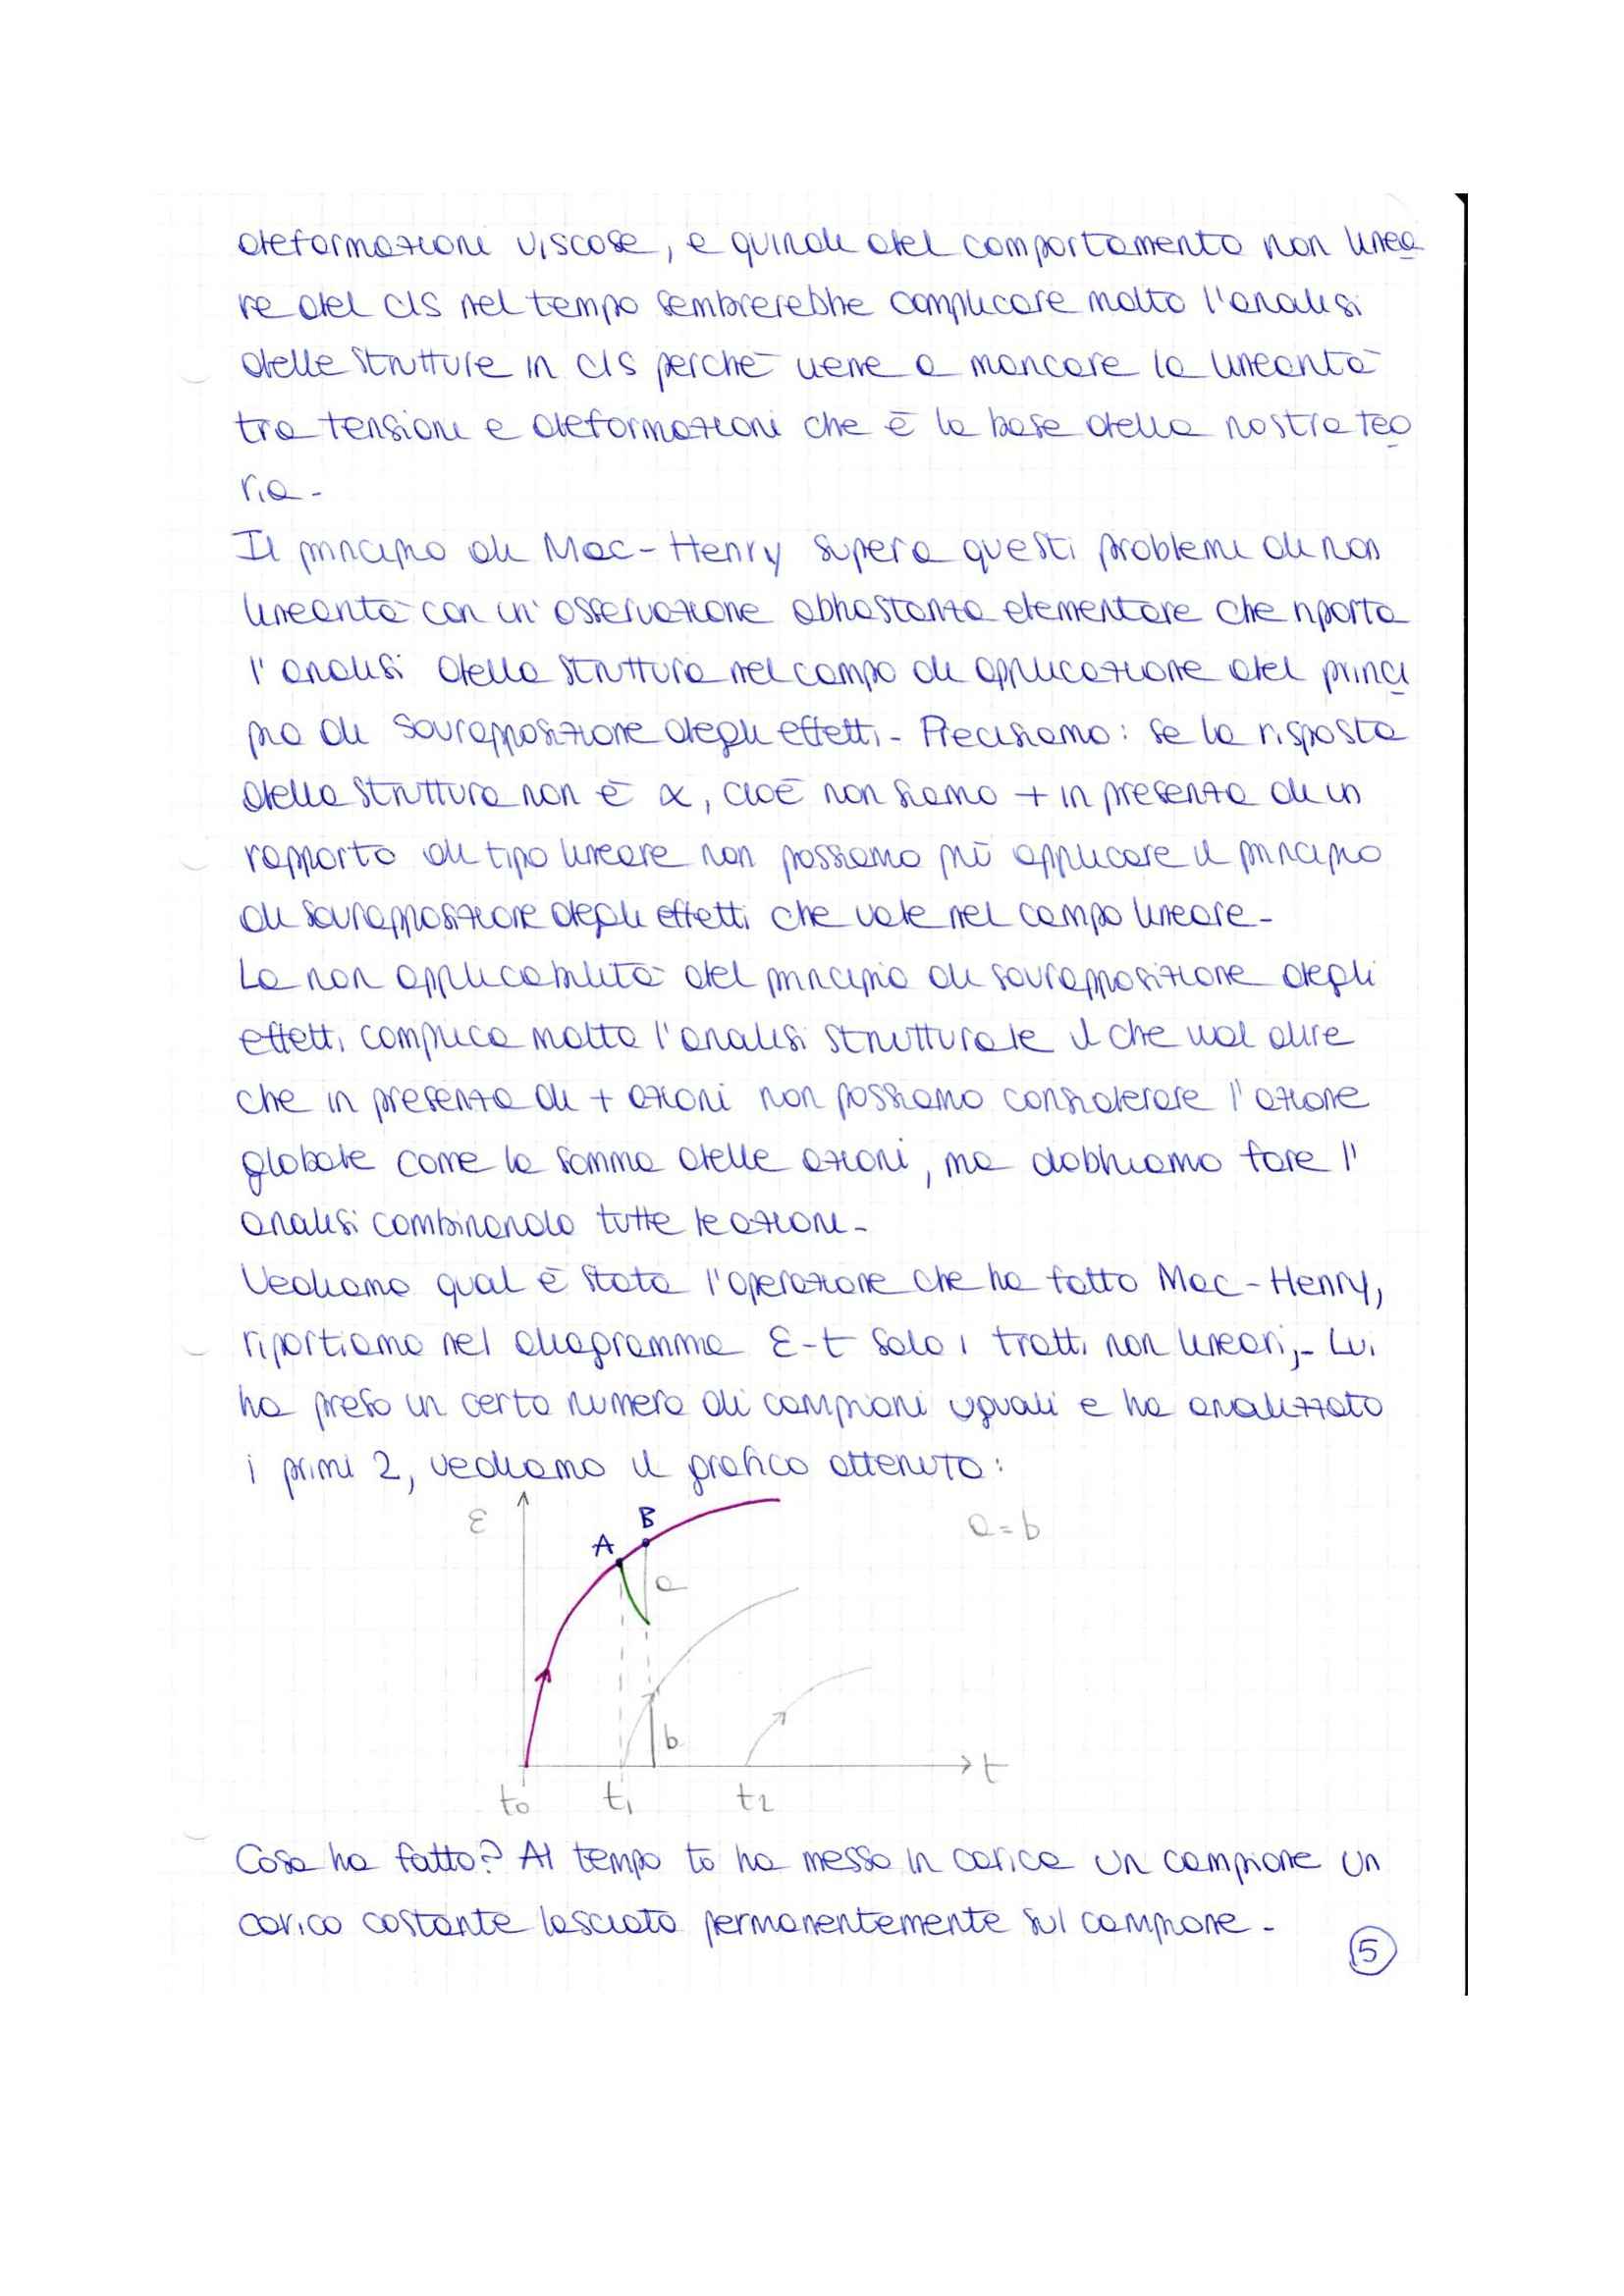 deformazioni viscose, e quindi del comportamento non linea
re del cls nel tempo sembrerebbe complicare molto l'analisi
delle strutture in cls perchè viene a mancare la linearità
tra tensioni e deformazioni che è la base della nostra teo
ria -
Il principio di Mac-Henry supera questi problemi di non
linearità con un'osservazione abbastanza elementare che riporta
l'analisi della struttura nel campo di applicazione del princi
pio di sovrapposizione degli effetti - Precisiamo: se la risposta
della struttura non è ∝, cioè non siamo + in presenza di un
rapporto di tipo lineare non possiamo più applicare il principio
di sovrapposizione degli effetti che vale nel campo lineare -
La non applicabilità del principio di sovrapposizione degli
effetti complica molto l'analisi strutturale il che vuol dire
che in presenza di + azioni non possiamo considerare l'azione
globale come la somma delle azioni, ma dobbiamo fare l'
analisi combinando tutte le azioni -
Vediamo qual è stata l'operazione che ha fatto Mac-Henry,
riportiamo nel diagramma ε-t solo i tratti non lineari,- Lui
ha preso un certo numero di campioni uguali e ha analizzato
i primi 2, vediamo il grafico ottenuto:
ε
B
A
a = b
a
b
t
t0 t1 t2
Cosa ha fatto? Al tempo t0 ha messo in carico un campione un
carico costante lasciato permanentemente sul campione -
5